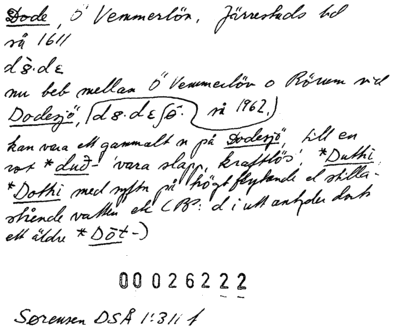 Dode, Ö Vemmerlöv, Järrestads hd
så 1611
dȣ̀·dɛ
nu beb mellan Ö Vemmerlöv o Rörum vid
Dodesjö, (dȣ·dɛʃö· så 1962.)
kan vara ett gammalt n på Dodesjö, till en
rot *duð- 'vara slapp, kraftlös', *Duthi,
*Dothi med syftn på högt flytande el stilla-
stående vatten etc (BP: d i utt antyder dock
ett äldre *Dōt-)
00026222
Sörensen DSÅ 1:311 f